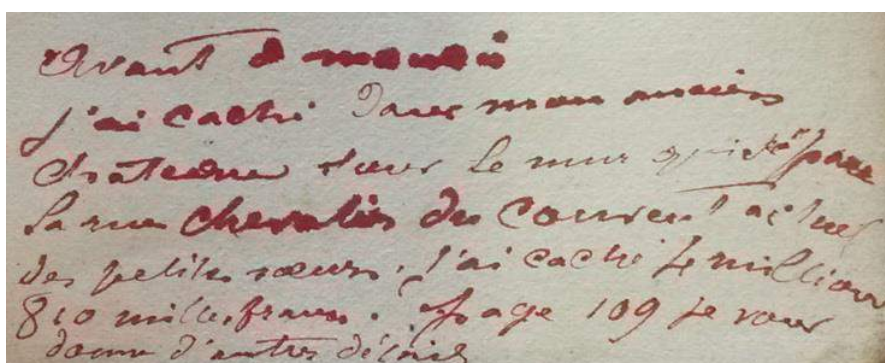 Avant de mourir
j'ai caché dans mon ancien
chateau dans le mur qui sépare
la rue chevalier du couvent actuel
des petites sœurs. j'ai caché 4 million
810 mille francs. page 109 je vous
donne d'autres détails